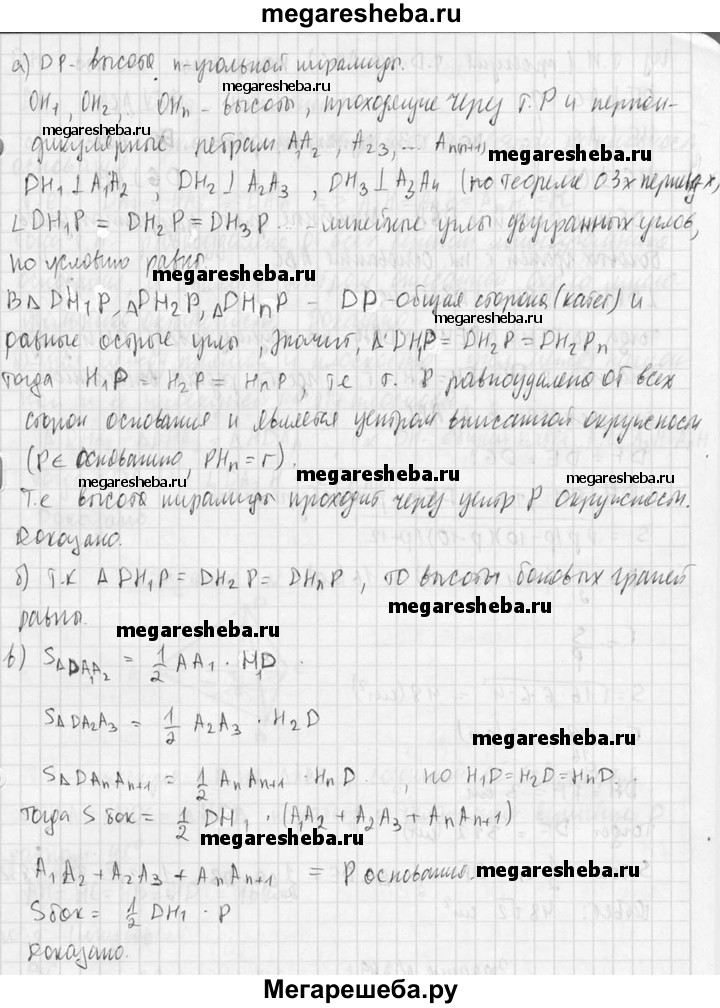 megaresheba.ru
а) DP - высота n-угольной пирамиды.
megaresheba.ru megaresheba.ru
OH1, OH2, ... OHn - высоты, проходящие через т. P и перпен-
дикулярные ребрам A1A2, A23, ... An(n+1)
megaresheba.ru
DH1 ⊥ A1A2, DH2 ⊥ A2A3, DH3 ⊥ A3A4 (по теореме о 3х перпенд-х),
∠DH1P = DH2P = DH3P ... - линейные углы двугранных углов,
по условию равны
megaresheba.ru
В Δ DH1P, Δ DH2P, Δ DHnP - DP - общая сторона (катет) и
megaresheba.ru
равные острые углы, значит, Δ DH1P = DH2P = DH2Pn
тогда H1P = H2P = HnP, т.е т. P равноудалено от всех
megaresheba.ru megaresheba.ru
сторон основания и является центром вписанной окружности
(P ∈ основанию, PHn = r).
megaresheba.ru megaresheba.ru megaresheba.ru
Т.е высота пирамиды проходит через центр P окружности.
Доказано.
megaresheba.ru
б) Т.к Δ DH1P = DH2P = DHnP, то высоты боковых граней
megaresheba.ru
равны.
megaresheba.ru
в) SΔDA1A2 = 1/2 AA1 · H1D.
SΔDA2A3 = 1/2 A2A3 · H2D
megaresheba.ru
SΔDAnAn+1 = 1/2 AnAn+1 · HnD, но H1D=H2D=HnD.
Тогда S бок = 1/2 DH1 · (A1A2 + A2A3 + AnAn+1)
megaresheba.ru
A1A2 + A2A3 + AnAn+1 = P основание.
megaresheba.ru
Sбок = 1/2 DH1 · P
Доказано.
megaresheba.ru
Мегарешеба.ру